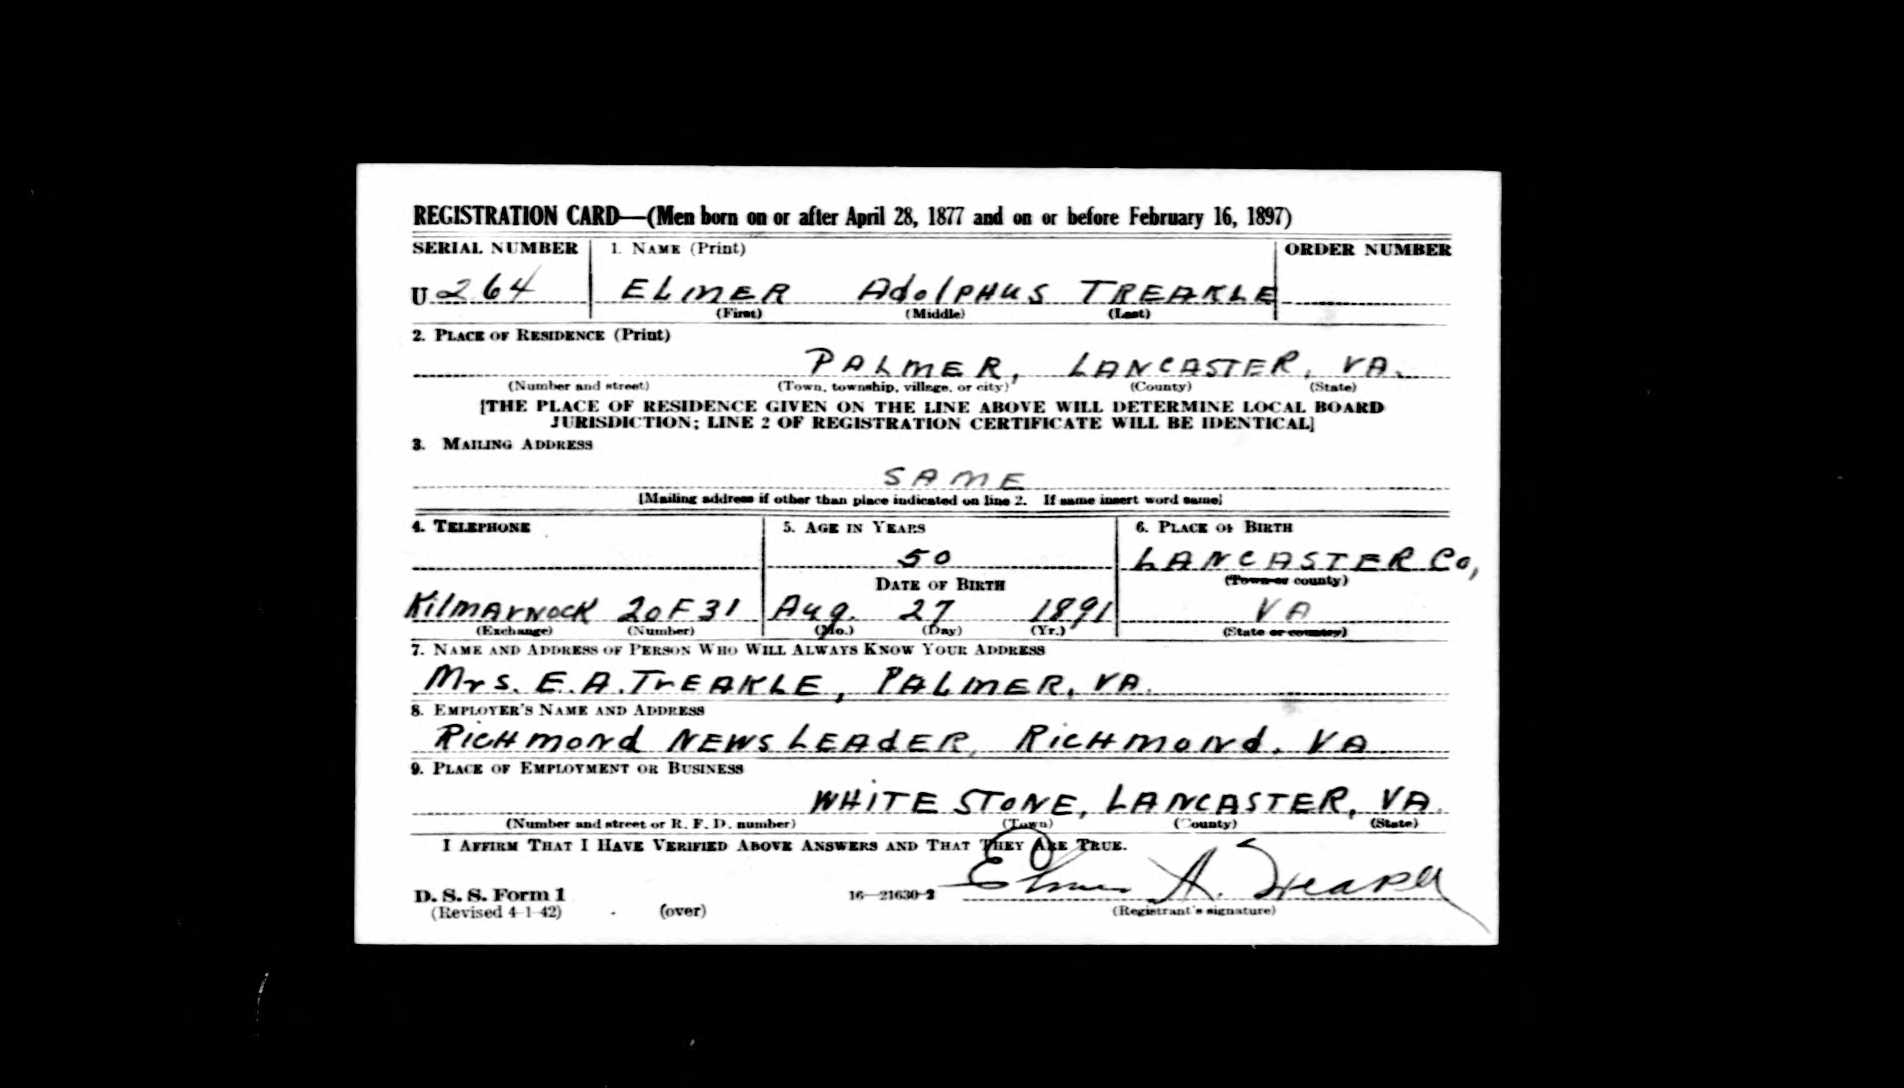 REGISTRATION CARD—(Men born on or after April 28, 1877 and on or before February 16, 1897)
SERIAL NUMBER 1. NAME (Print) ORDER NUMBER
U 264 ELMER AdolPHUS TREAKLE
(First) (Middle) (Last)
2. PLACE OF RESIDENCE (Print)
PALMER, LANCASTER, VA.
(Number and street) (Town, township, village, or city) (County) (State)
[THE PLACE OF RESIDENCE GIVEN ON THE LINE ABOVE WILL DETERMINE LOCAL BOARD
JURISDICTION; LINE 2 OF REGISTRATION CERTIFICATE WILL BE IDENTICAL]
3. MAILING ADDRESS
SAME
[Mailing address if other than place indicated on line 2. If same insert word same]
4. TELEPHONE 5. AGE IN YEARS 6. PLACE OF BIRTH
50 LANCASTER Co,
DATE OF BIRTH (Town or county)
KilMArNocK 20F31 Aug. 27 1891 VA
(Exchange) (Number) (Mo.) (Day) (Yr.) (State or country)
7. NAME AND ADDRESS OF PERSON WHO WILL ALWAYS KNOW YOUR ADDRESS
Mrs. E.A.TrEAKLE, PALMER, VA.
8. EMPLOYER'S NAME AND ADDRESS
RicHmoNd NEWS LEAdER, RicHmoNd. VA
9. PLACE OF EMPLOYMENT OR BUSINESS
WHiTE STONE, LANCASTER, VA.
(Number and street or R. F. D. number) (Town) (County) (State)
I AFFIRM THAT I HAVE VERIFIED ABOVE ANSWERS AND THAT THEY ARE TRUE.
D. S. S. Form 1 16—21630-2 Elmer A. Treakle
(Revised 4-1-42) (over) (Registrant's signature)